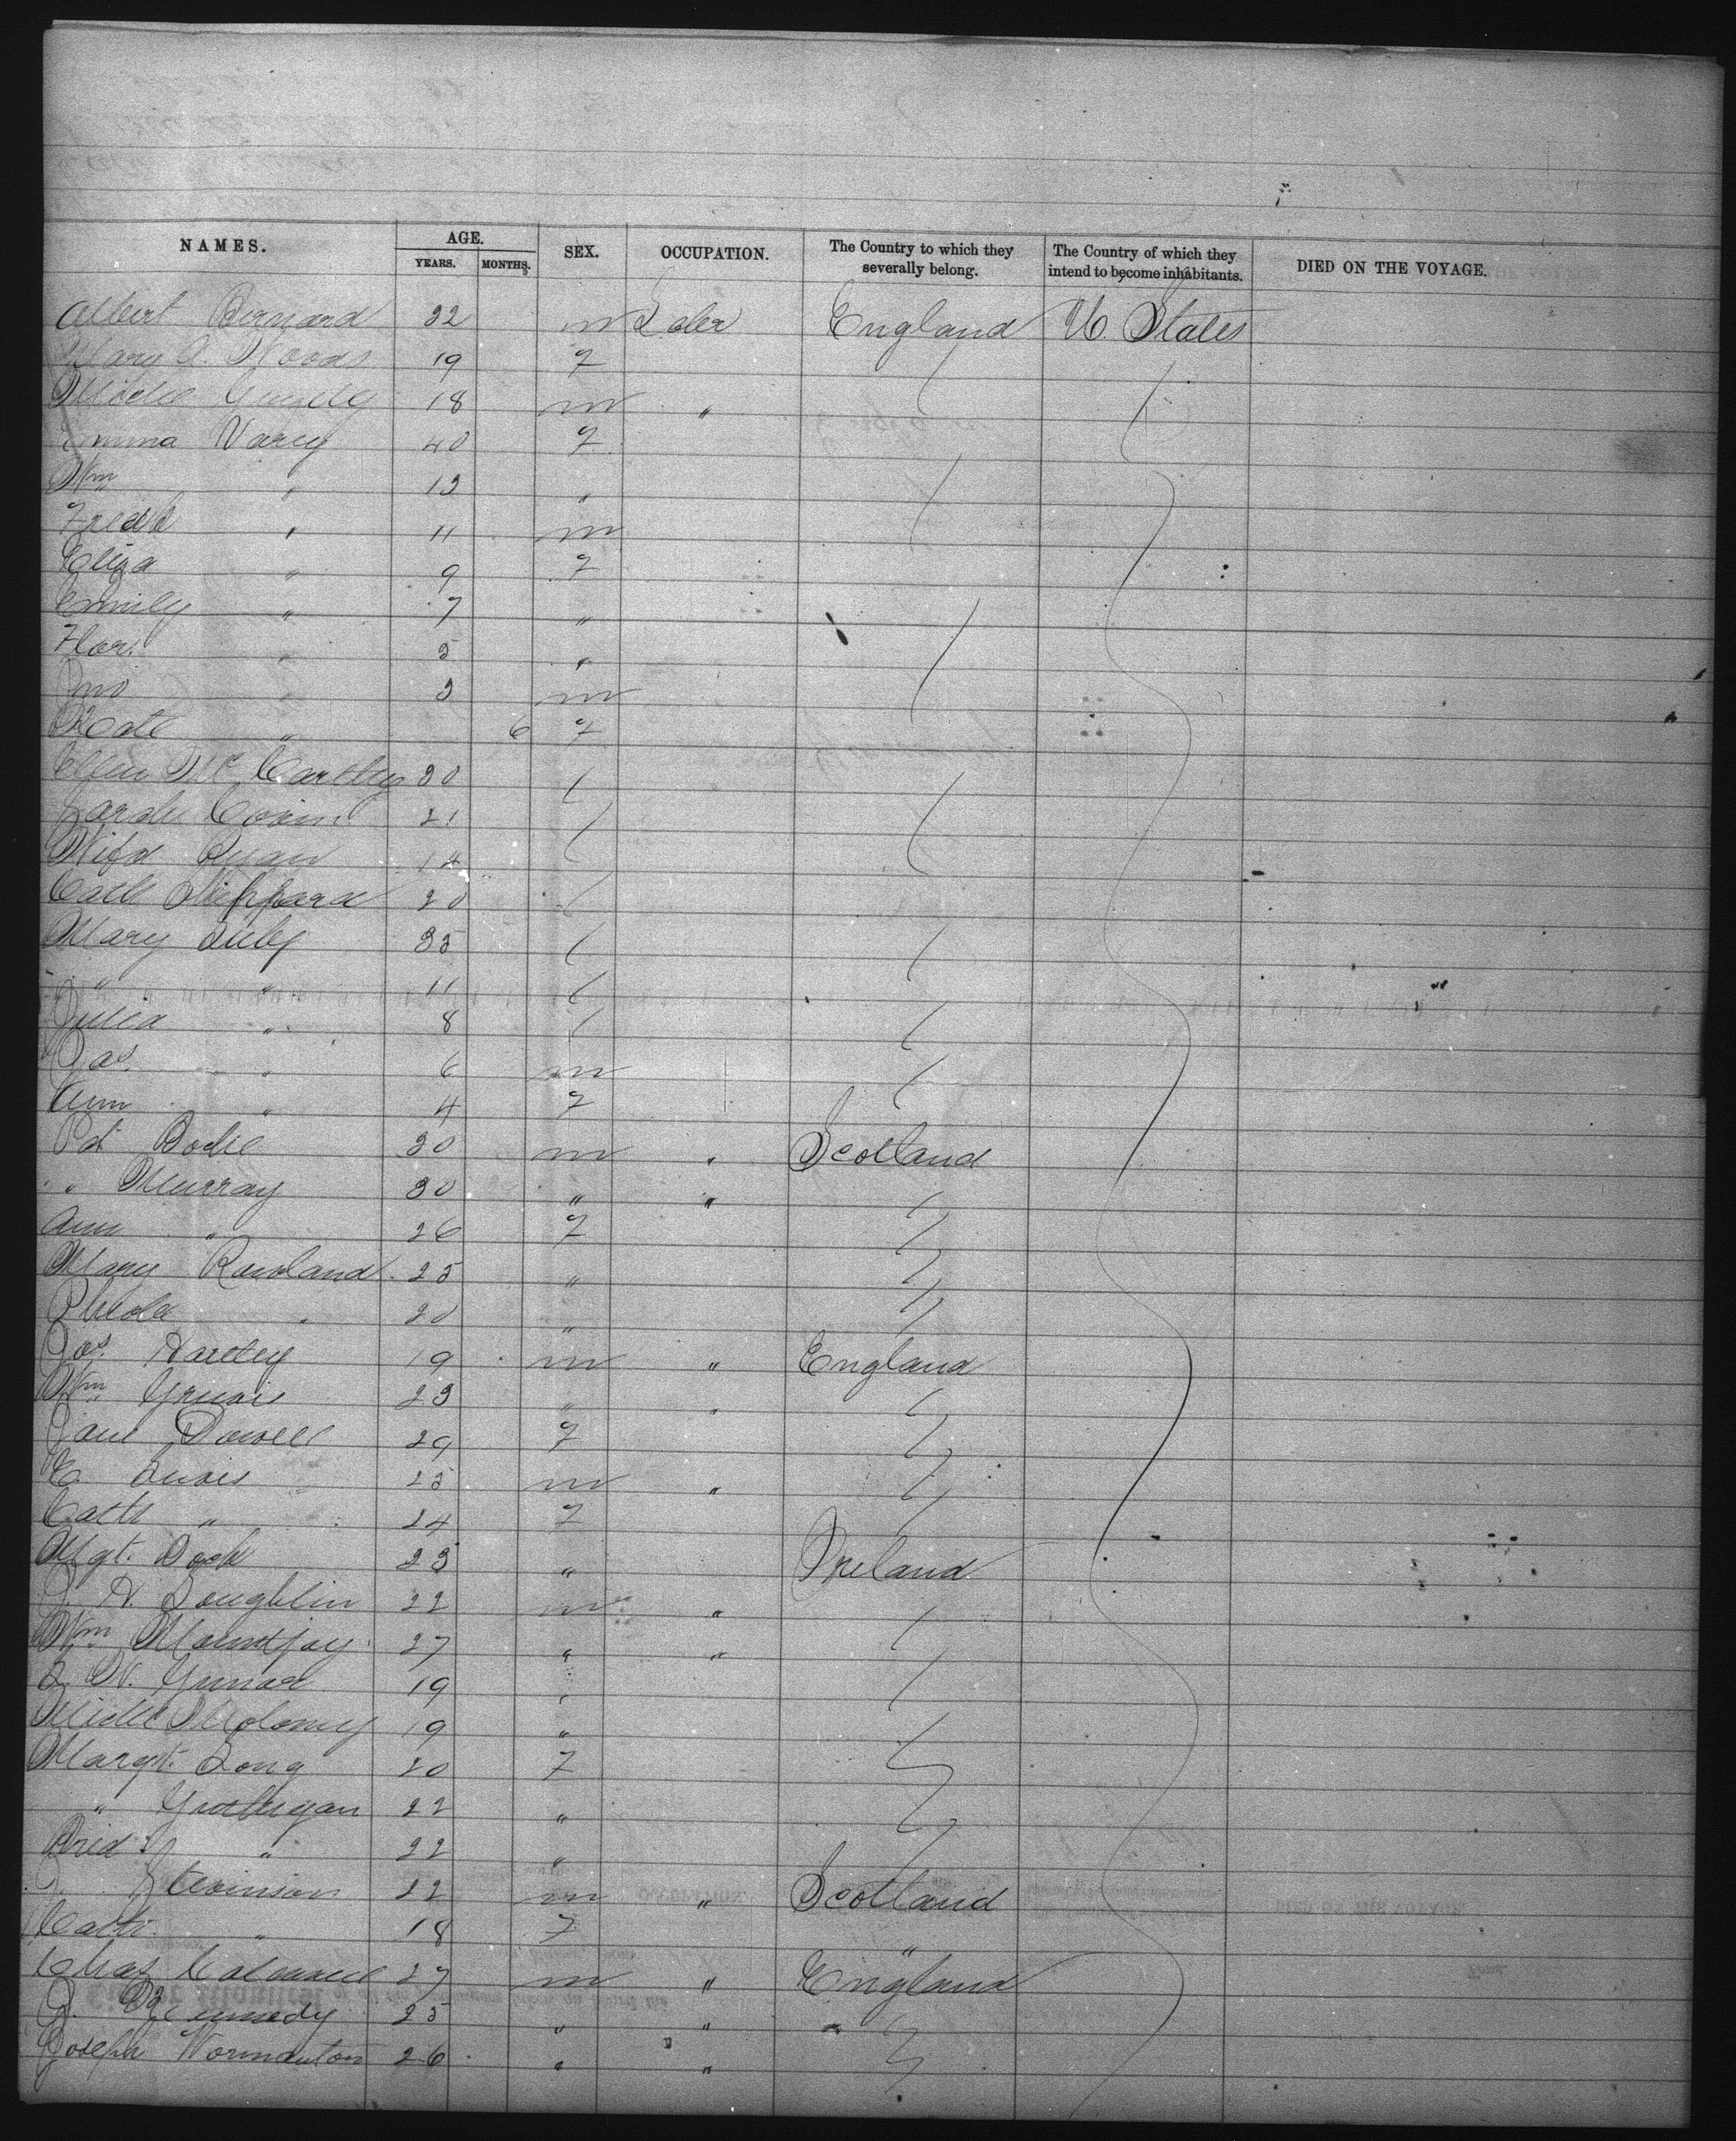 NAMES. AGE. SEX. OCCUPATION. The Country to which they severally belong. The Country of which they intend to become inhabitants. DIED ON THE VOYAGE.
YEARS. MONTHS.
Albert Bernard 32 m Laber England U. States
Mary A. Woods 19 F
18 m "
Emma Varey 40 F
Wm " 13 "
Fredk " 11 m
Eliza " 9 F
Emily " 7 "
Flor. " 5 "
Jno " 3 m
Kate " 6 F
Ellen McCarthy 30
21
Ryan 14
Cath Sheppard 20
Mary Luby 35
" " 11
Julia " 8
Jas. " 6 m
Ann " 4 F
Pat 30 m " Scotland
" Murray 30 " "
Ann " 26 F
Mary Rowland 25 "
" 20 "
Jas. Hartley 19 m " England
Wm 23 " "
Jane 29 F
E. Lewis 25 m "
Cath " 24 F
Mgt. 23 " Ireland
J. H. Loughlin 22 m "
Wm Mountjoy 27 " "
19 "
Moloney 19 "
Margt. Long 20 F
" 22 "
Brid " 22 "
22 m " Scotland
Cath. " 18 F "
Chas 27 m " England
J. Kennedy 25 " "
Joseph Normanton 26 " "